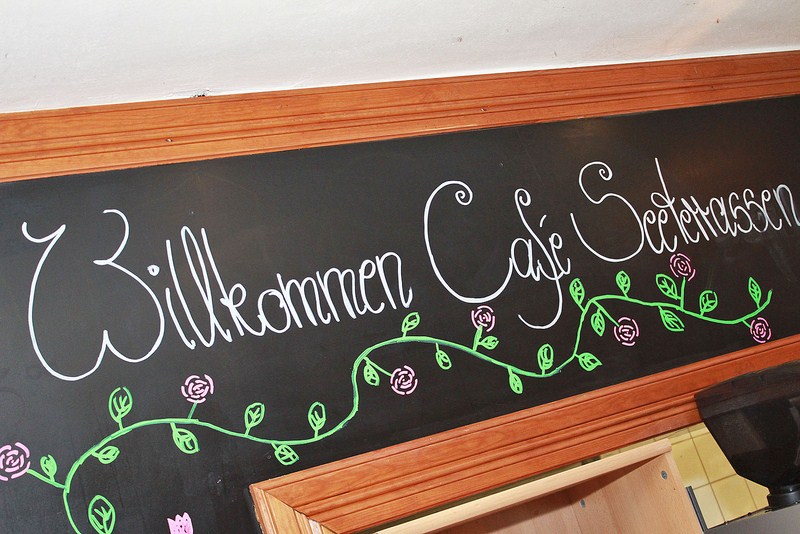 Willkommen Café Seeterrassen